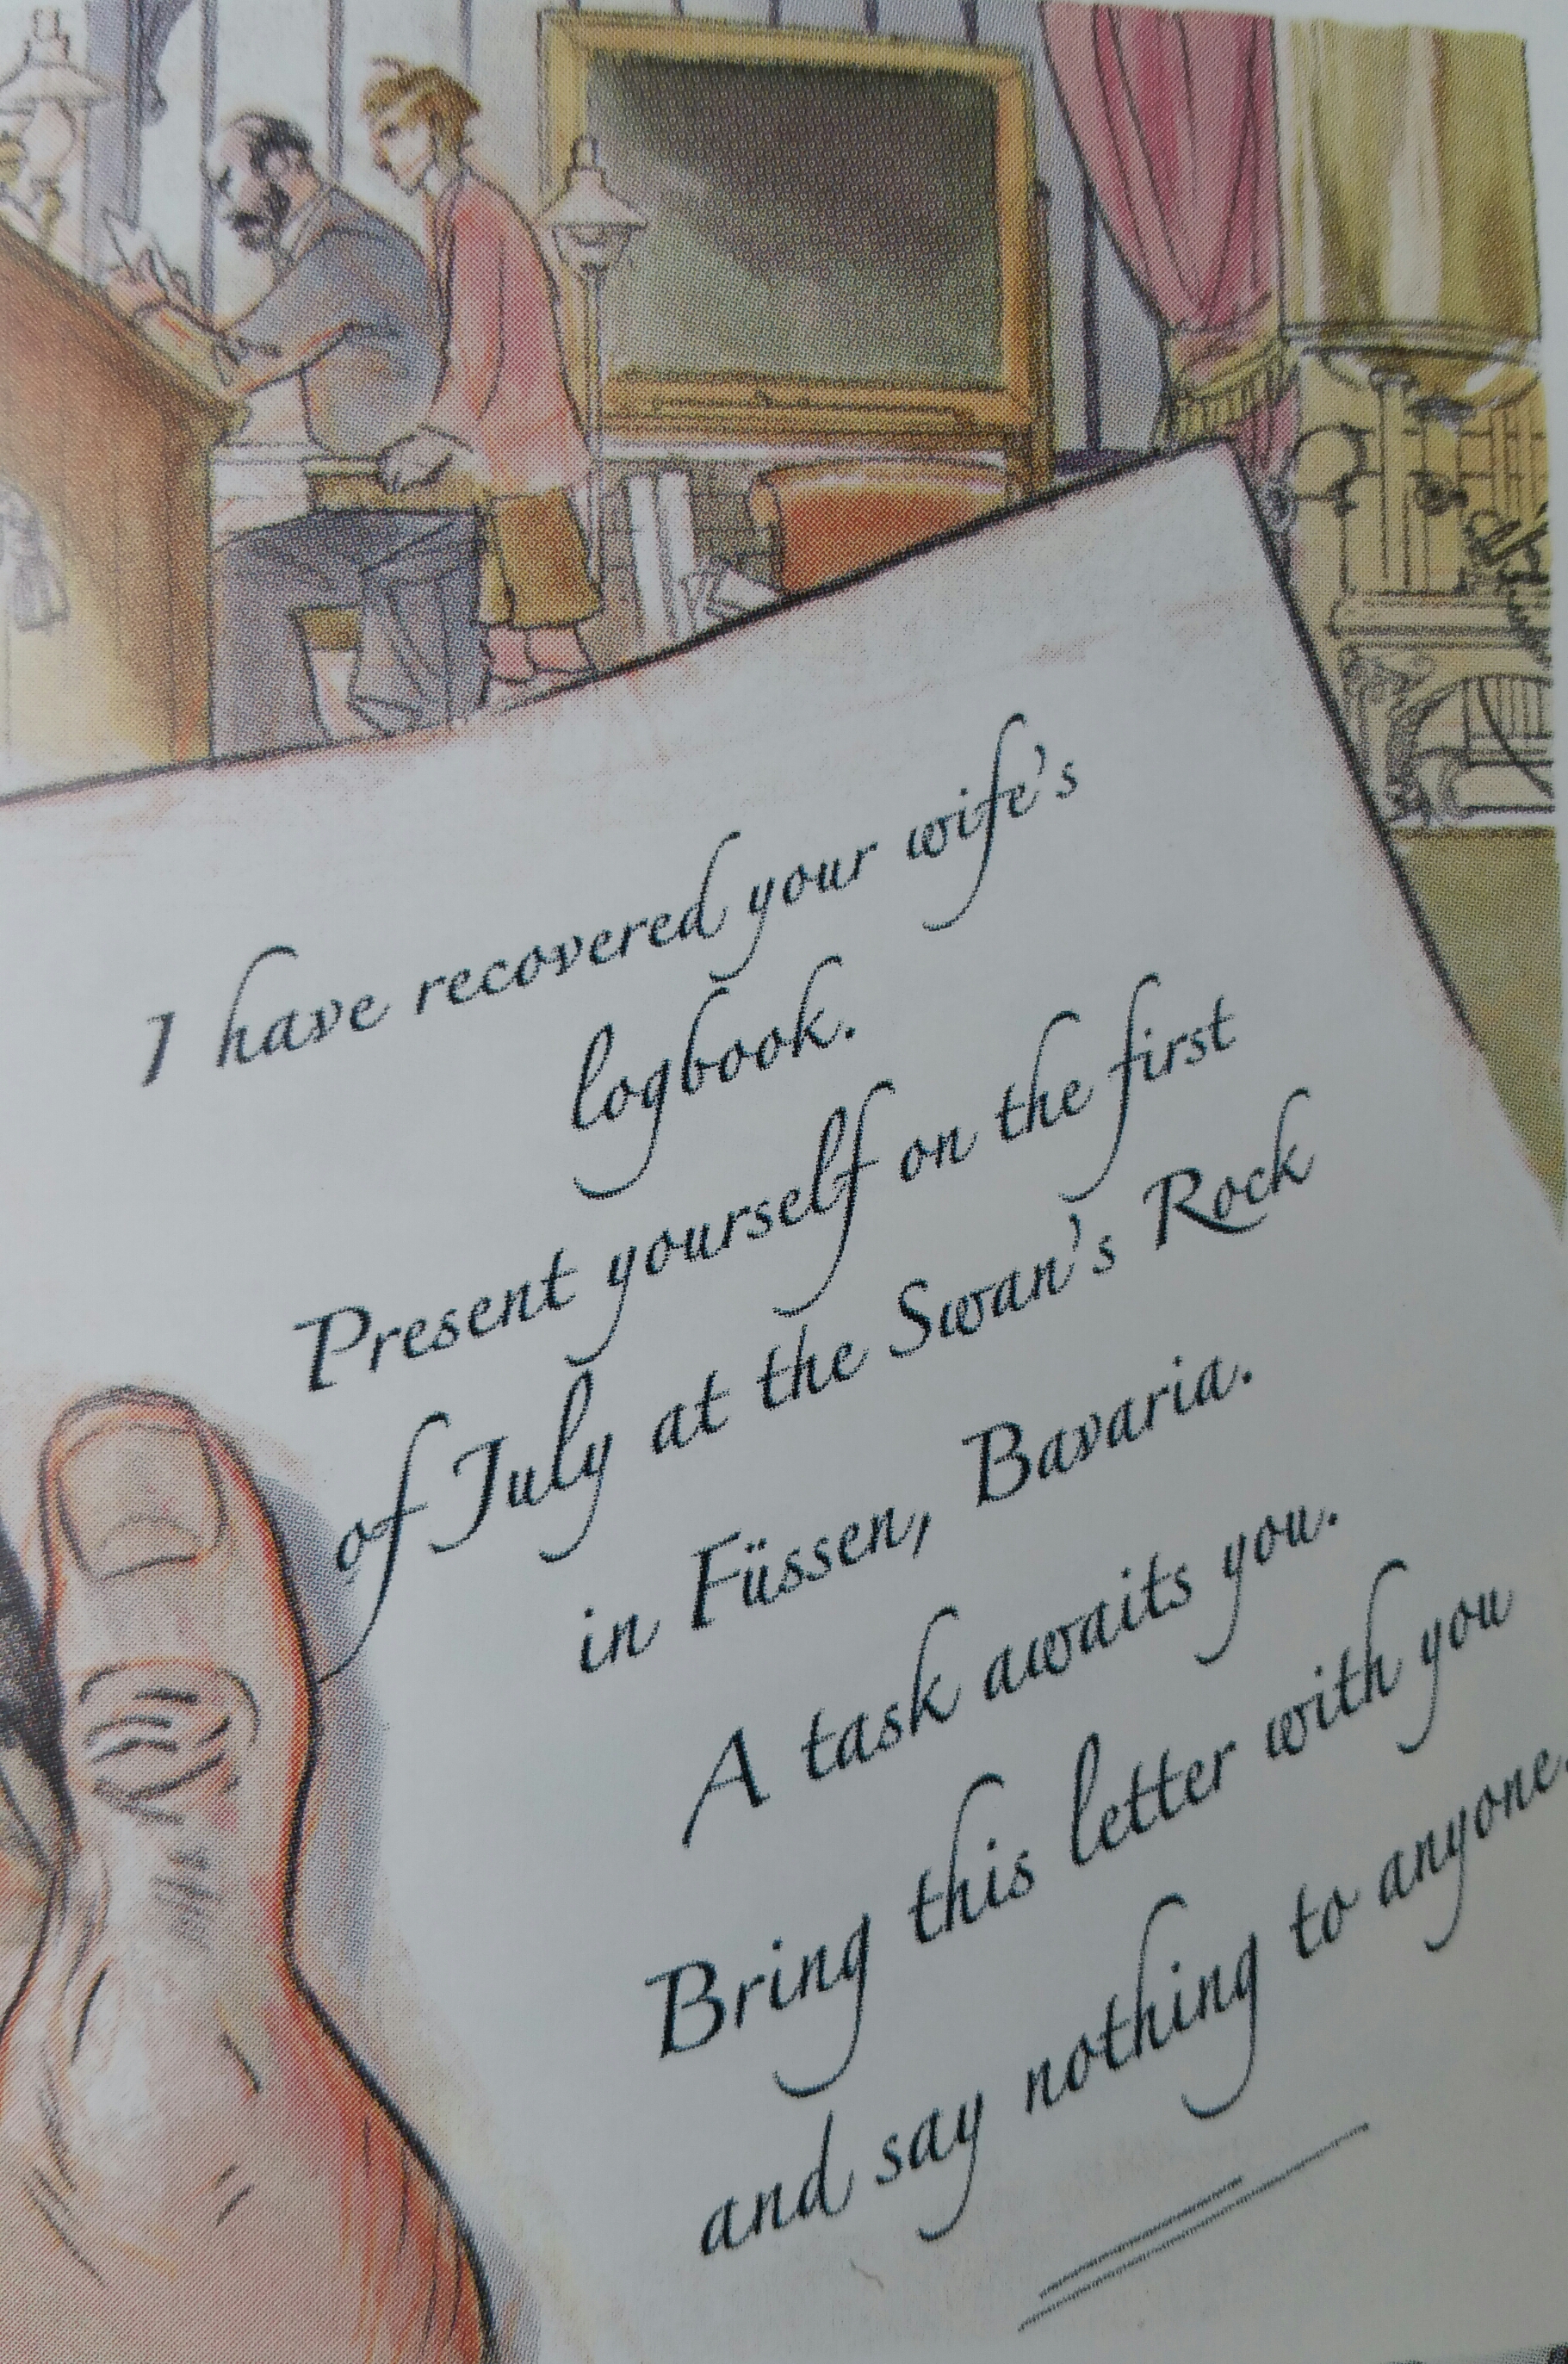 I have recovered your wife's
logbook.
Present yourself on the first
of July at the Swan's Rock
in Füssen, Bavaria.
A task awaits you.
Bring this letter with you
and say nothing to anyone.